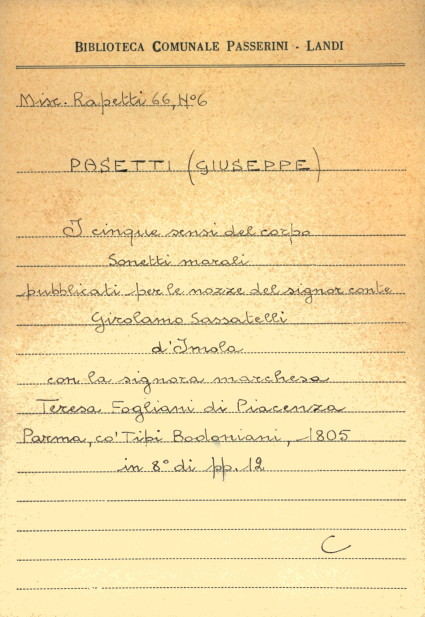 BIBLIOTECA COMUNALE PASSERINI - LANDI
Misc. Rapetti 66, N°6
PASETTI (GIUSEPPE)
I cinque sensi del corpo
Sonetti morali
pubblicati per le nozze del signor conte
Girolamo Sassatelli
d'Imola
con la signora marchesa
Teresa Fogliani di Piacenza
Parma, co' Tipi Bodoniani, 1805
in 8° di pp. 12
C